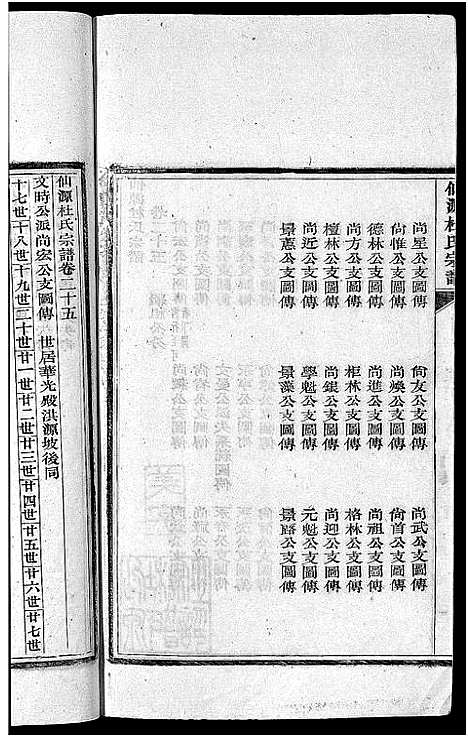 仙源杜氏宗譜
尚星公支圖傳　尙友公支圖傳　尚武公支圖傳
尙惟公支圖傳　尚煥公支圖傳　尙首公支圖傳
德林公支圖傳　尚進公支圖傳　尚祖公支圖傳
尚方公支圖傳　柜林公支圖傳　格林公支圖傳
檀林公支圖傳　尚銀公支圖傳　尚迎公支圖傳
尚近公支圖傳　學魁公支圖傳　元魁公支圖傳
景蕙公支圖傳　景藻公支圖傳　景露公支圖傳
仙源杜氏宗譜卷二十五
文時公派尚宏公支圖傳　世居華光殿洪源坡後同
十七世十八世十九世二十世廿一世廿二世廿三世廿四世廿五世廿六世廿七世